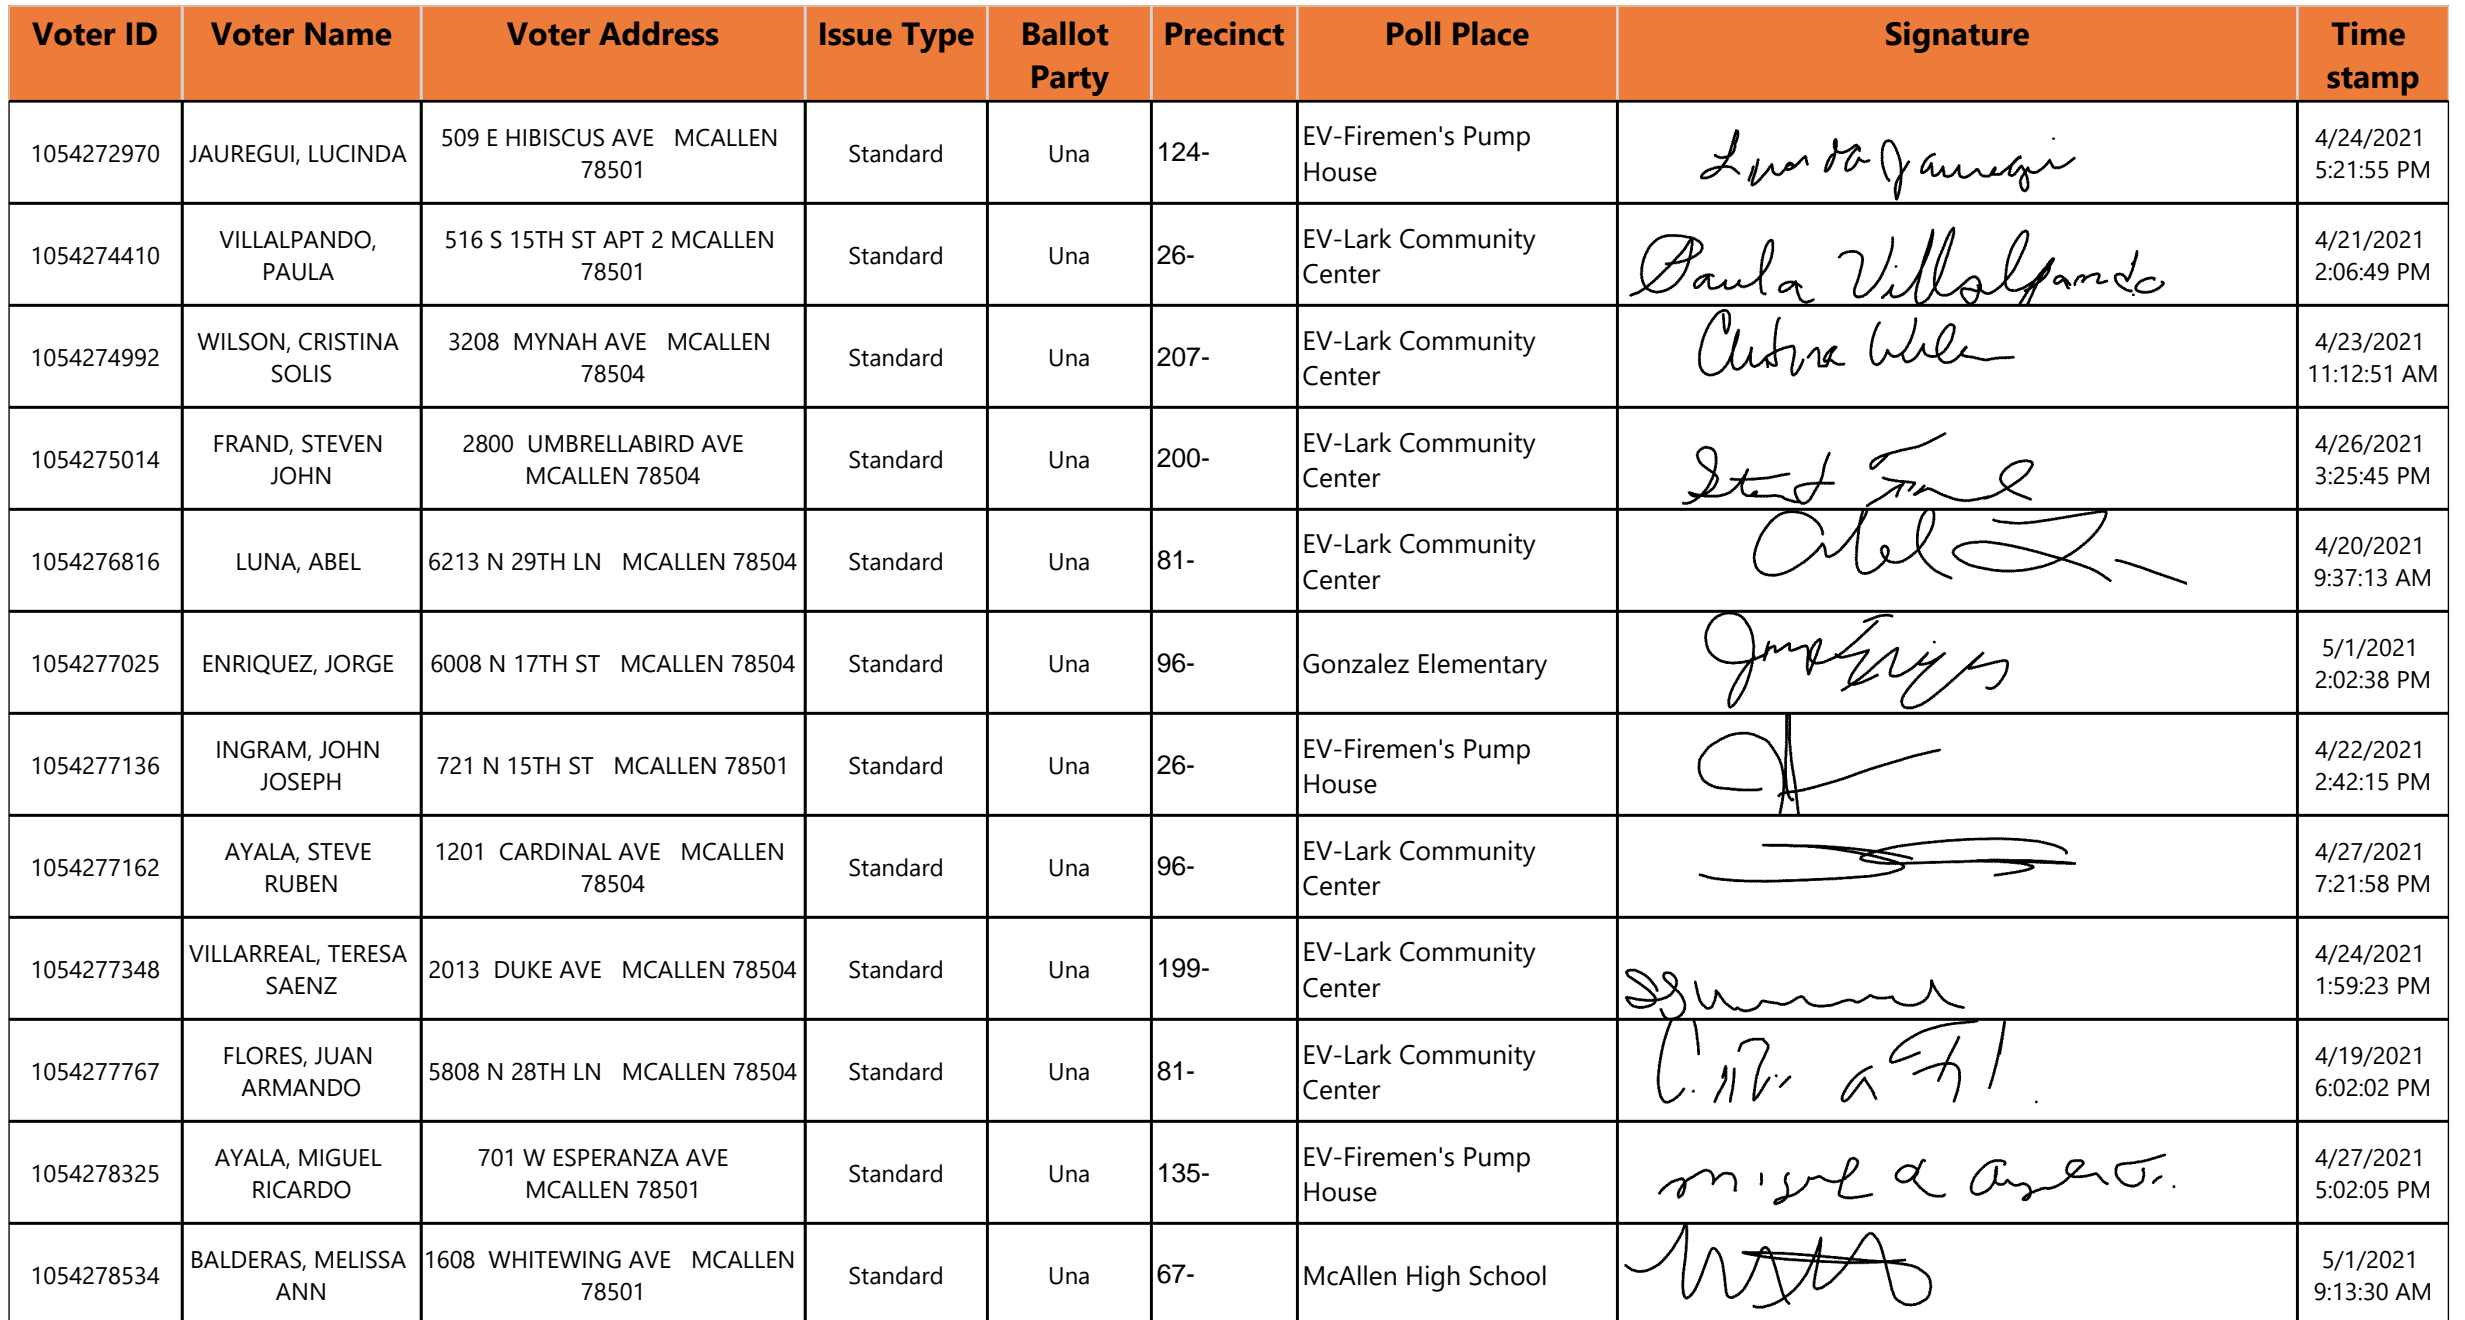 Voter ID Voter Name Voter Address Issue Type Ballot Party Precinct Poll Place Signature Time stamp
1054272970 JAUREGUI, LUCINDA 509 E HIBISCUS AVE MCALLEN 78501 Standard Una 124- EV-Firemen's Pump House 4/24/2021 5:21:55 PM
1054274410 VILLALPANDO, PAULA 516 S 15TH ST APT 2 MCALLEN 78501 Standard Una 26- EV-Lark Community Center Paula Villalpando 4/21/2021 2:06:49 PM
1054274992 WILSON, CRISTINA SOLIS 3208 MYNAH AVE MCALLEN 78504 Standard Una 207- EV-Lark Community Center 4/23/2021 11:12:51 AM
1054275014 FRAND, STEVEN JOHN 2800 UMBRELLABIRD AVE MCALLEN 78504 Standard Una 200- EV-Lark Community Center 4/26/2021 3:25:45 PM
1054276816 LUNA, ABEL 6213 N 29TH LN MCALLEN 78504 Standard Una 81- EV-Lark Community Center Abel 4/20/2021 9:37:13 AM
1054277025 ENRIQUEZ, JORGE 6008 N 17TH ST MCALLEN 78504 Standard Una 96- Gonzalez Elementary 5/1/2021 2:02:38 PM
1054277136 INGRAM, JOHN JOSEPH 721 N 15TH ST MCALLEN 78501 Standard Una 26- EV-Firemen's Pump House 4/22/2021 2:42:15 PM
1054277162 AYALA, STEVE RUBEN 1201 CARDINAL AVE MCALLEN 78504 Standard Una 96- EV-Lark Community Center 4/27/2021 7:21:58 PM
1054277348 VILLARREAL, TERESA SAENZ 2013 DUKE AVE MCALLEN 78504 Standard Una 199- EV-Lark Community Center 4/24/2021 1:59:23 PM
1054277767 FLORES, JUAN ARMANDO 5808 N 28TH LN MCALLEN 78504 Standard Una 81- EV-Lark Community Center 4/19/2021 6:02:02 PM
1054278325 AYALA, MIGUEL RICARDO 701 W ESPERANZA AVE MCALLEN 78501 Standard Una 135- EV-Firemen's Pump House 4/27/2021 5:02:05 PM
1054278534 BALDERAS, MELISSA ANN 1608 WHITEWING AVE MCALLEN 78501 Standard Una 67- McAllen High School 5/1/2021 9:13:30 AM